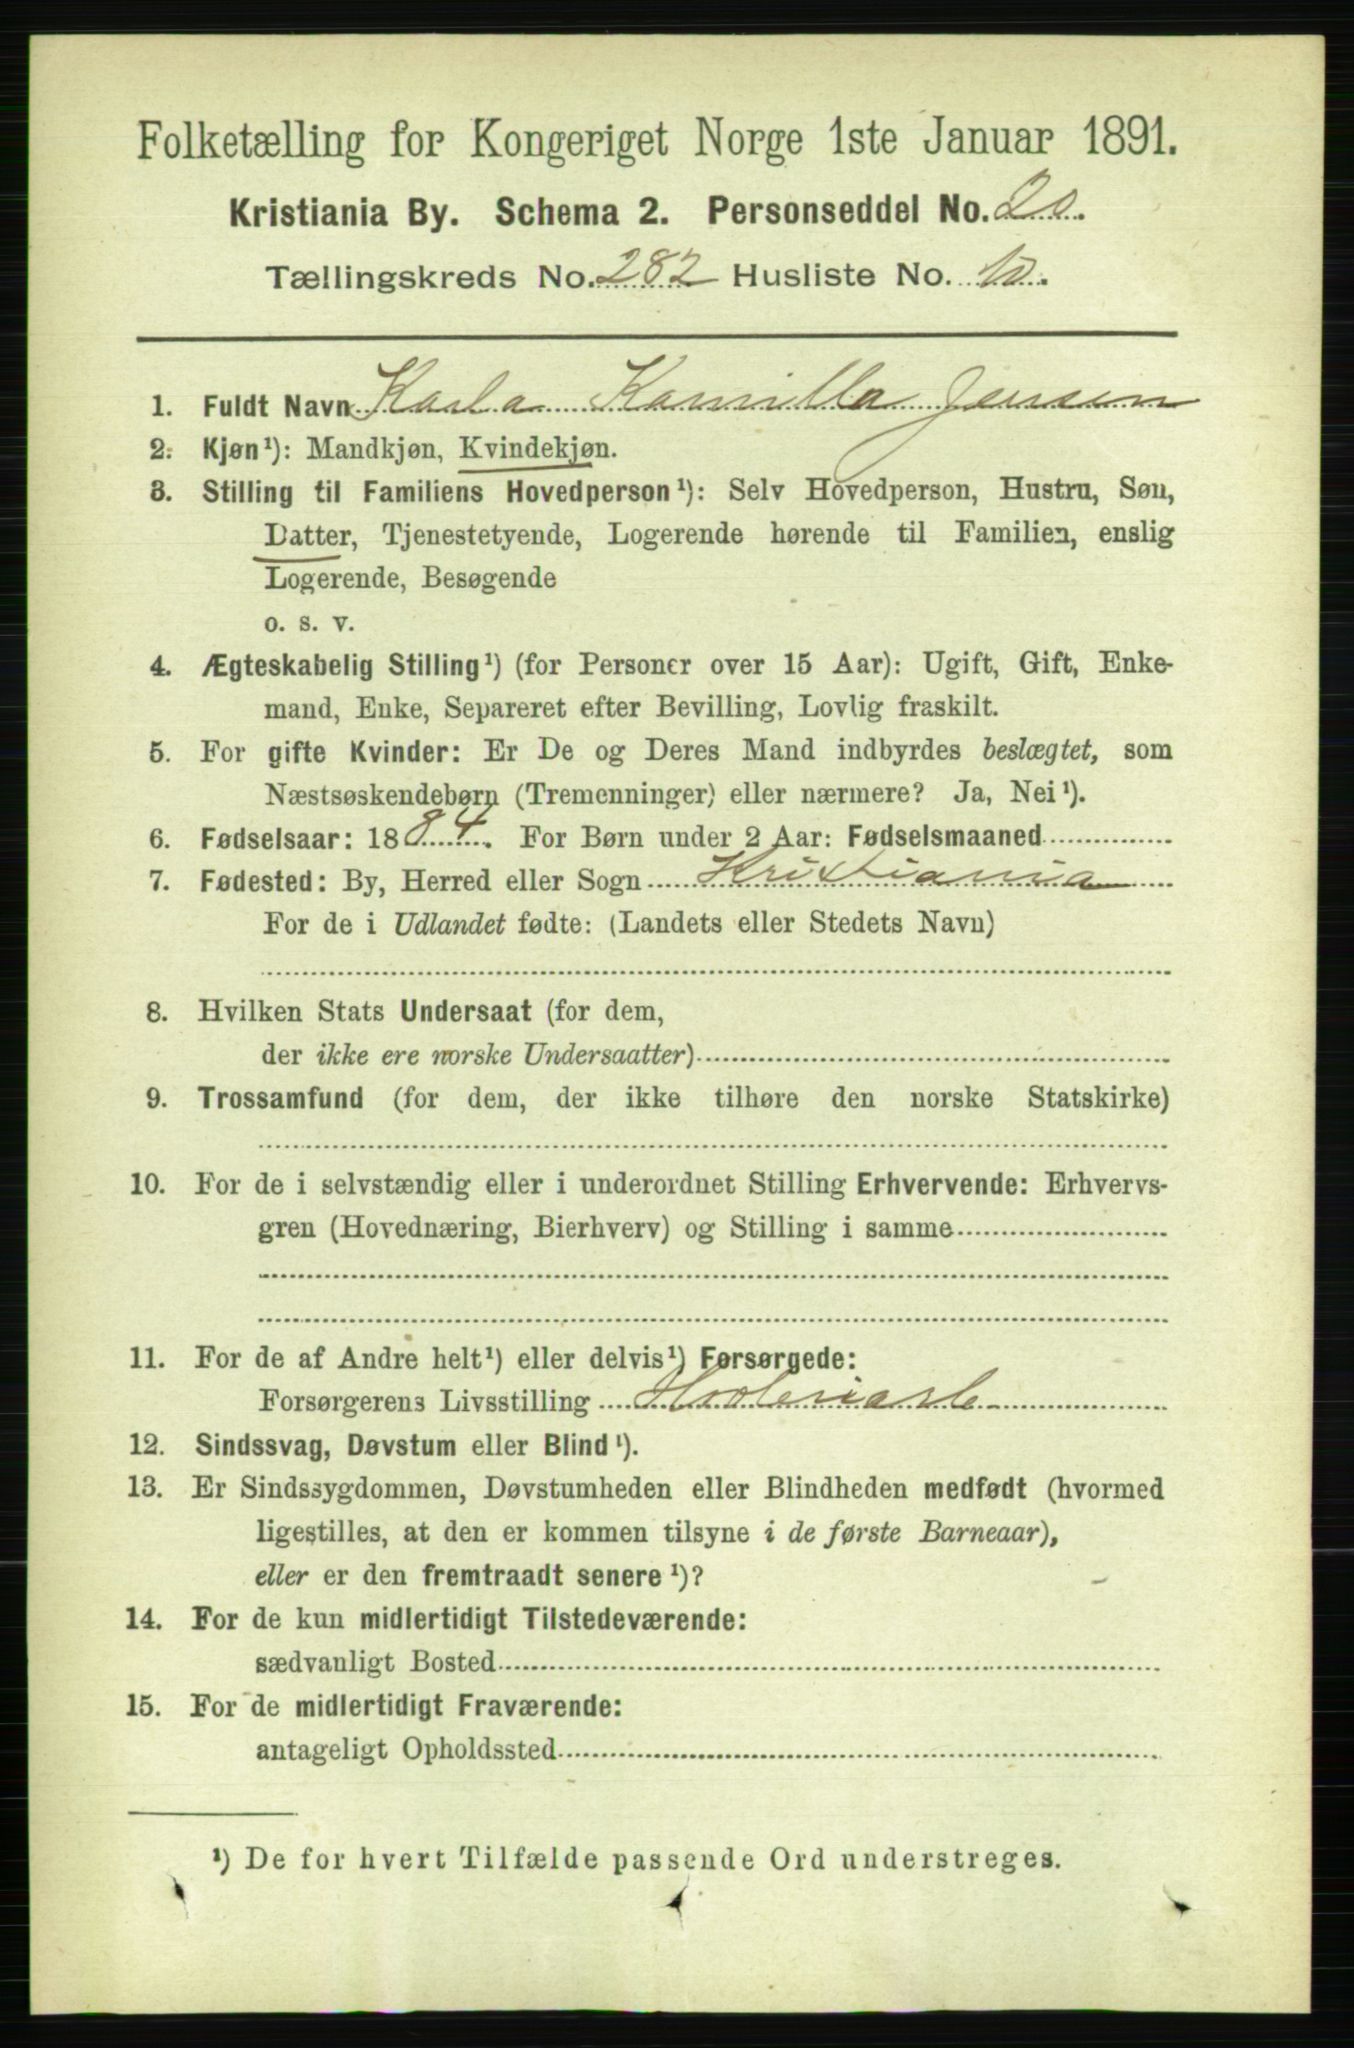 Folketælling for Kongeriget Norge 1ste Januar 1891.
Kristiania By. Schema 2. Personseddel No. 20.
Tællingskreds No. 282 Husliste No. 10.
1. Fuldt Navn Karla Kamilla Jensen
2. Kjøn¹): Mandkjøn, Kvindekjøn.
3. Stilling til Familiens Hovedperson¹): Selv Hovedperson, Hustru, Søn,
Datter, Tjenestetyende, Logerende hørende til Familien, enslig
Logerende, Besøgende
o. s. v.
4. Ægteskabelig Stilling¹) (for Personer over 15 Aar): Ugift, Gift, Enke-
mand, Enke, Separeret efter Bevilling, Lovlig fraskilt.
5. For gifte Kvinder: Er De og Deres Mand indbyrdes beslægtet, som
Næstsøskendebørn (Tremenninger) eller nærmere? Ja, Nei¹).
6. Fødselsaar: 1884. For Børn under 2 Aar: Fødselsmaaned
7. Fødested: By, Herred eller Sogn Kristiania
For de i Udlandet fødte: (Landets eller Stedets Navn)
8. Hvilken Stats Undersaat (for dem,
der ikke ere norske Undersaatter)
9. Trossamfund (for dem, der ikke tilhøre den norske Statskirke)
10. For de i selvstændig eller i underordnet Stilling Erhvervende: Erhvervs-
gren (Hovednæring, Bierhverv) og Stilling i samme
11. For de af Andre helt¹) eller delvis¹) Forsørgede:
Forsørgerens Livsstilling
12. Sindssvag, Døvstum eller Blind¹).
13. Er Sindssygdommen, Døvstumheden eller Blindheden medfødt (hvormed
ligestilles, at den er kommen tilsyne i de første Barneaar),
eller er den fremtraadt senere¹)?
14. For de kun midlertidigt Tilstedeværende:
sædvanligt Bosted
15. For de midlertidigt Fraværende:
antageligt Opholdssted
¹) De for hvert Tilfælde passende Ord understreges.